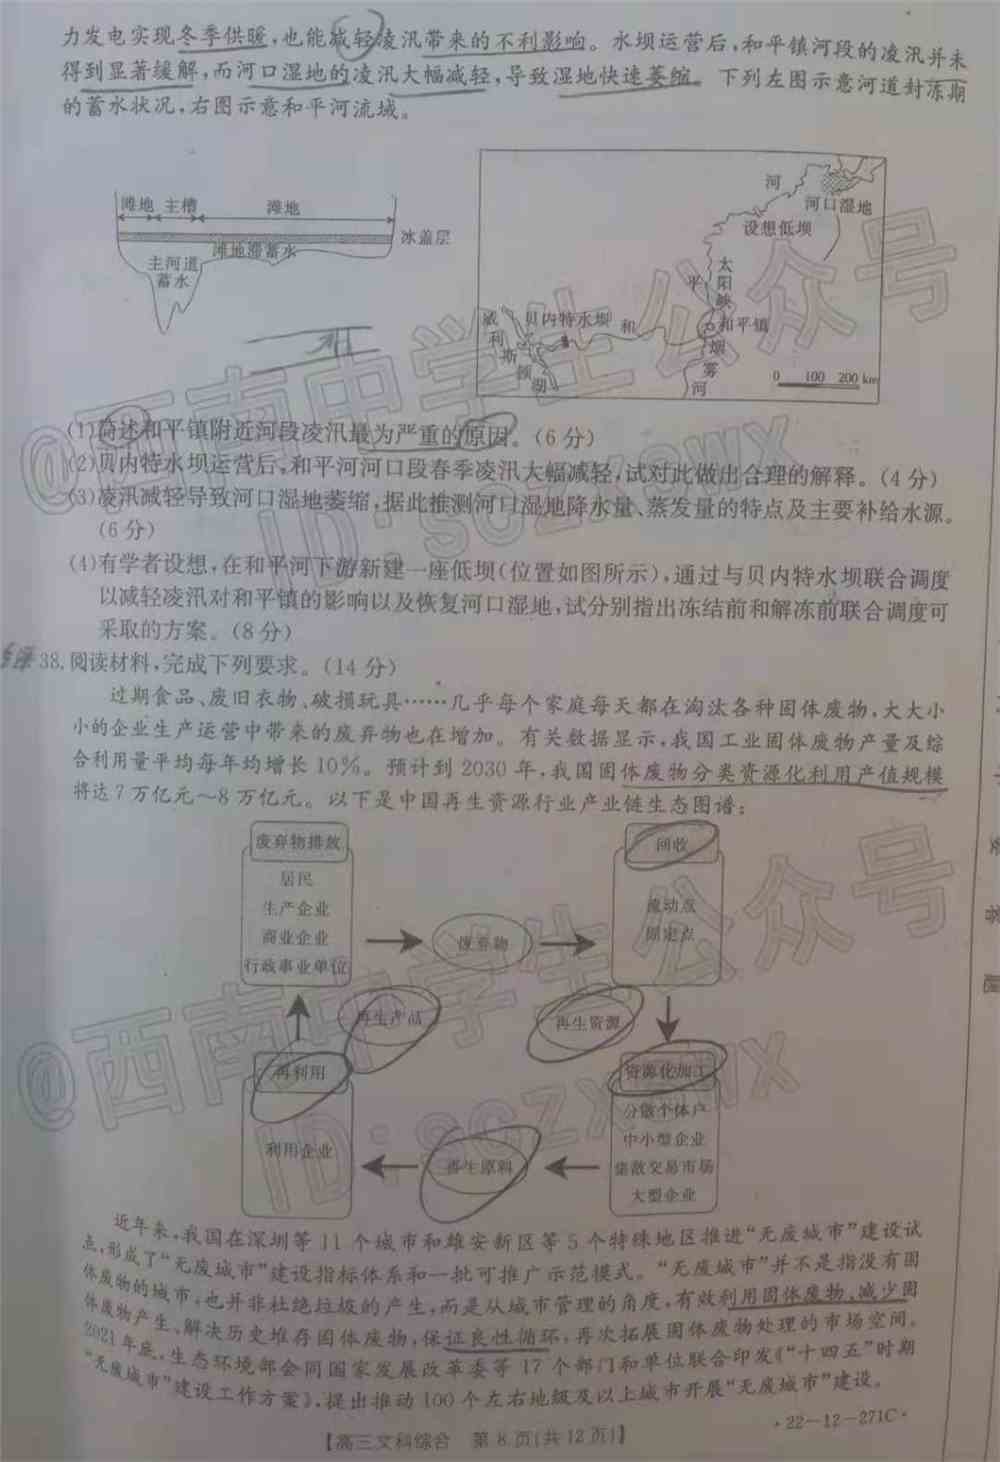 力发电实现冬季供暖,也能减轻凌汛带来的不利影响。水坝运营后,和平镇河段的凌汛并未
得到显著缓解,而河口湿地的凌汛大幅减轻,导致湿地快速萎缩。下列左图示意河道封冻期
的蓄水状况,右图示意和平河流域。
滩地 主槽 滩地
冰盖层
滩地滞蓄水
主河道
蓄水
河
河口湿地
设想低坝
太阳峡
平
威利斯顿湖
贝内特水坝
和
和平镇
烟雾河
0 100 200 km
(1)简述和平镇附近河段凌汛最为严重的原因。(6分)
(2)贝内特水坝运营后,和平河河口段春季凌汛大幅减轻,试对此做出合理的解释。(4分)
(3)凌汛减轻导致河口湿地萎缩,据此推测河口湿地降水量、蒸发量的特点及主要补给水源。
(6分)
(4)有学者设想,在和平河下游新建一座低坝(位置如图所示),通过与贝内特水坝联合调度
以减轻凌汛对和平镇的影响以及恢复河口湿地,试分别指出冻结前和解冻前联合调度可
采取的方案。(8分)
38.阅读材料,完成下列要求。(14分)
过期食品、废旧衣物、破损玩具……几乎每个家庭每天都在淘汰各种固体废物,大大小
小的企业生产运营中带来的废弃物也在增加。有关数据显示,我国工业固体废物产量及综
合利用量平均每年均增长10%。预计到2030年,我国固体废物分类资源化利用产值规模
将达7万亿元~8万亿元。以下是中国再生资源行业产业链生态图谱:
废弃物排放
居民
生产企业
商业企业
行政事业单位
废弃物
回收
流动点
固定点
再生产品
再生资源
再利用
利用企业
资源化加工
分散个体户
中小型企业
集散交易市场
大型企业
再生原料
近年来,我国在深圳等11个城市和雄安新区等5个特殊地区推进“无废城市”建设试
点,形成了“无废城市”建设指标体系和一批可推广示范模式。“无废城市”并不是指没有固
体废物的城市,也并非杜绝垃圾的产生,而是从城市管理的角度,有效利用固体废物、减少固
体废物产生、解决历史堆存固体废物,保证良性循环,再次拓展固体废物处理的市场空间。
2021年底,生态环境部会同国家发展改革委等17个部门和单位联合印发《“十四五”时期
“无废城市”建设工作方案》,提出推动100个左右地级及以上城市开展“无废城市”建设。
·22-12-271C·
【高三文科综合 第8页(共12页)】
要
答
题
@西南中学生公众号
ID:SCZXSWX
@西南中学生公众号
ID:SCZXSWX